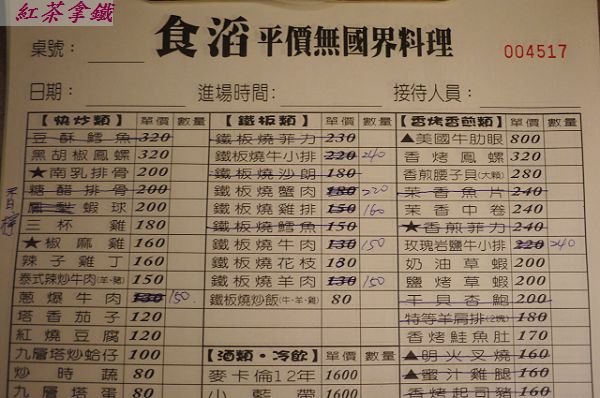 紅茶拿鐵
食滔 平價無國界料理
桌號：
004517
日期：
進場時間：
接待人員：
【快炒類】 單價 數量
豆酥鱈魚 320
黑胡椒鳳螺 320
★南乳排骨 200
糖醋排骨 200
鳳梨蝦球 200
香檸
三杯雞 180
★椒麻雞 160
辣子雞丁 160
泰式辣炒牛肉(羊、豬) 150
蔥爆牛肉 130 150
塔香茄子 120
紅燒豆腐 120
九層塔炒蛤仔 100
炒時蔬 80
九層塔蛋 80
【鐵板類】 單價 數量
鐵板燒菲力 230
鐵板燒牛小排 220 240
鐵板燒沙朗 180
鐵板燒蟹肉 180 220
鐵板燒雞排 150 160
鐵板燒鱈魚 150
鐵板燒牛肉 130 150
鐵板燒花枝 180
鐵板燒羊肉 130 150
鐵板燒炒飯(牛、羊、雞) 80
【酒類・冷飲】 單價 數量
麥卡倫12年 1600
小藍帶 1000
【香烤香煎類】 單價 數量
▲美國牛肋眼 800
香烤鳳螺 320
香煎腰子貝(大顆) 280
茉香魚片 240
茉香中卷 240
★香煎菲力 240
玫瑰岩鹽牛小排 220 240
奶油草蝦 200
鹽烤草蝦 200
干貝杏鮑 200
特等羊肩排(2塊) 180
香烤鮭魚肚 170
▲明火叉燒 160
▲蜜汁雞腿 160
香烤起司豬 160